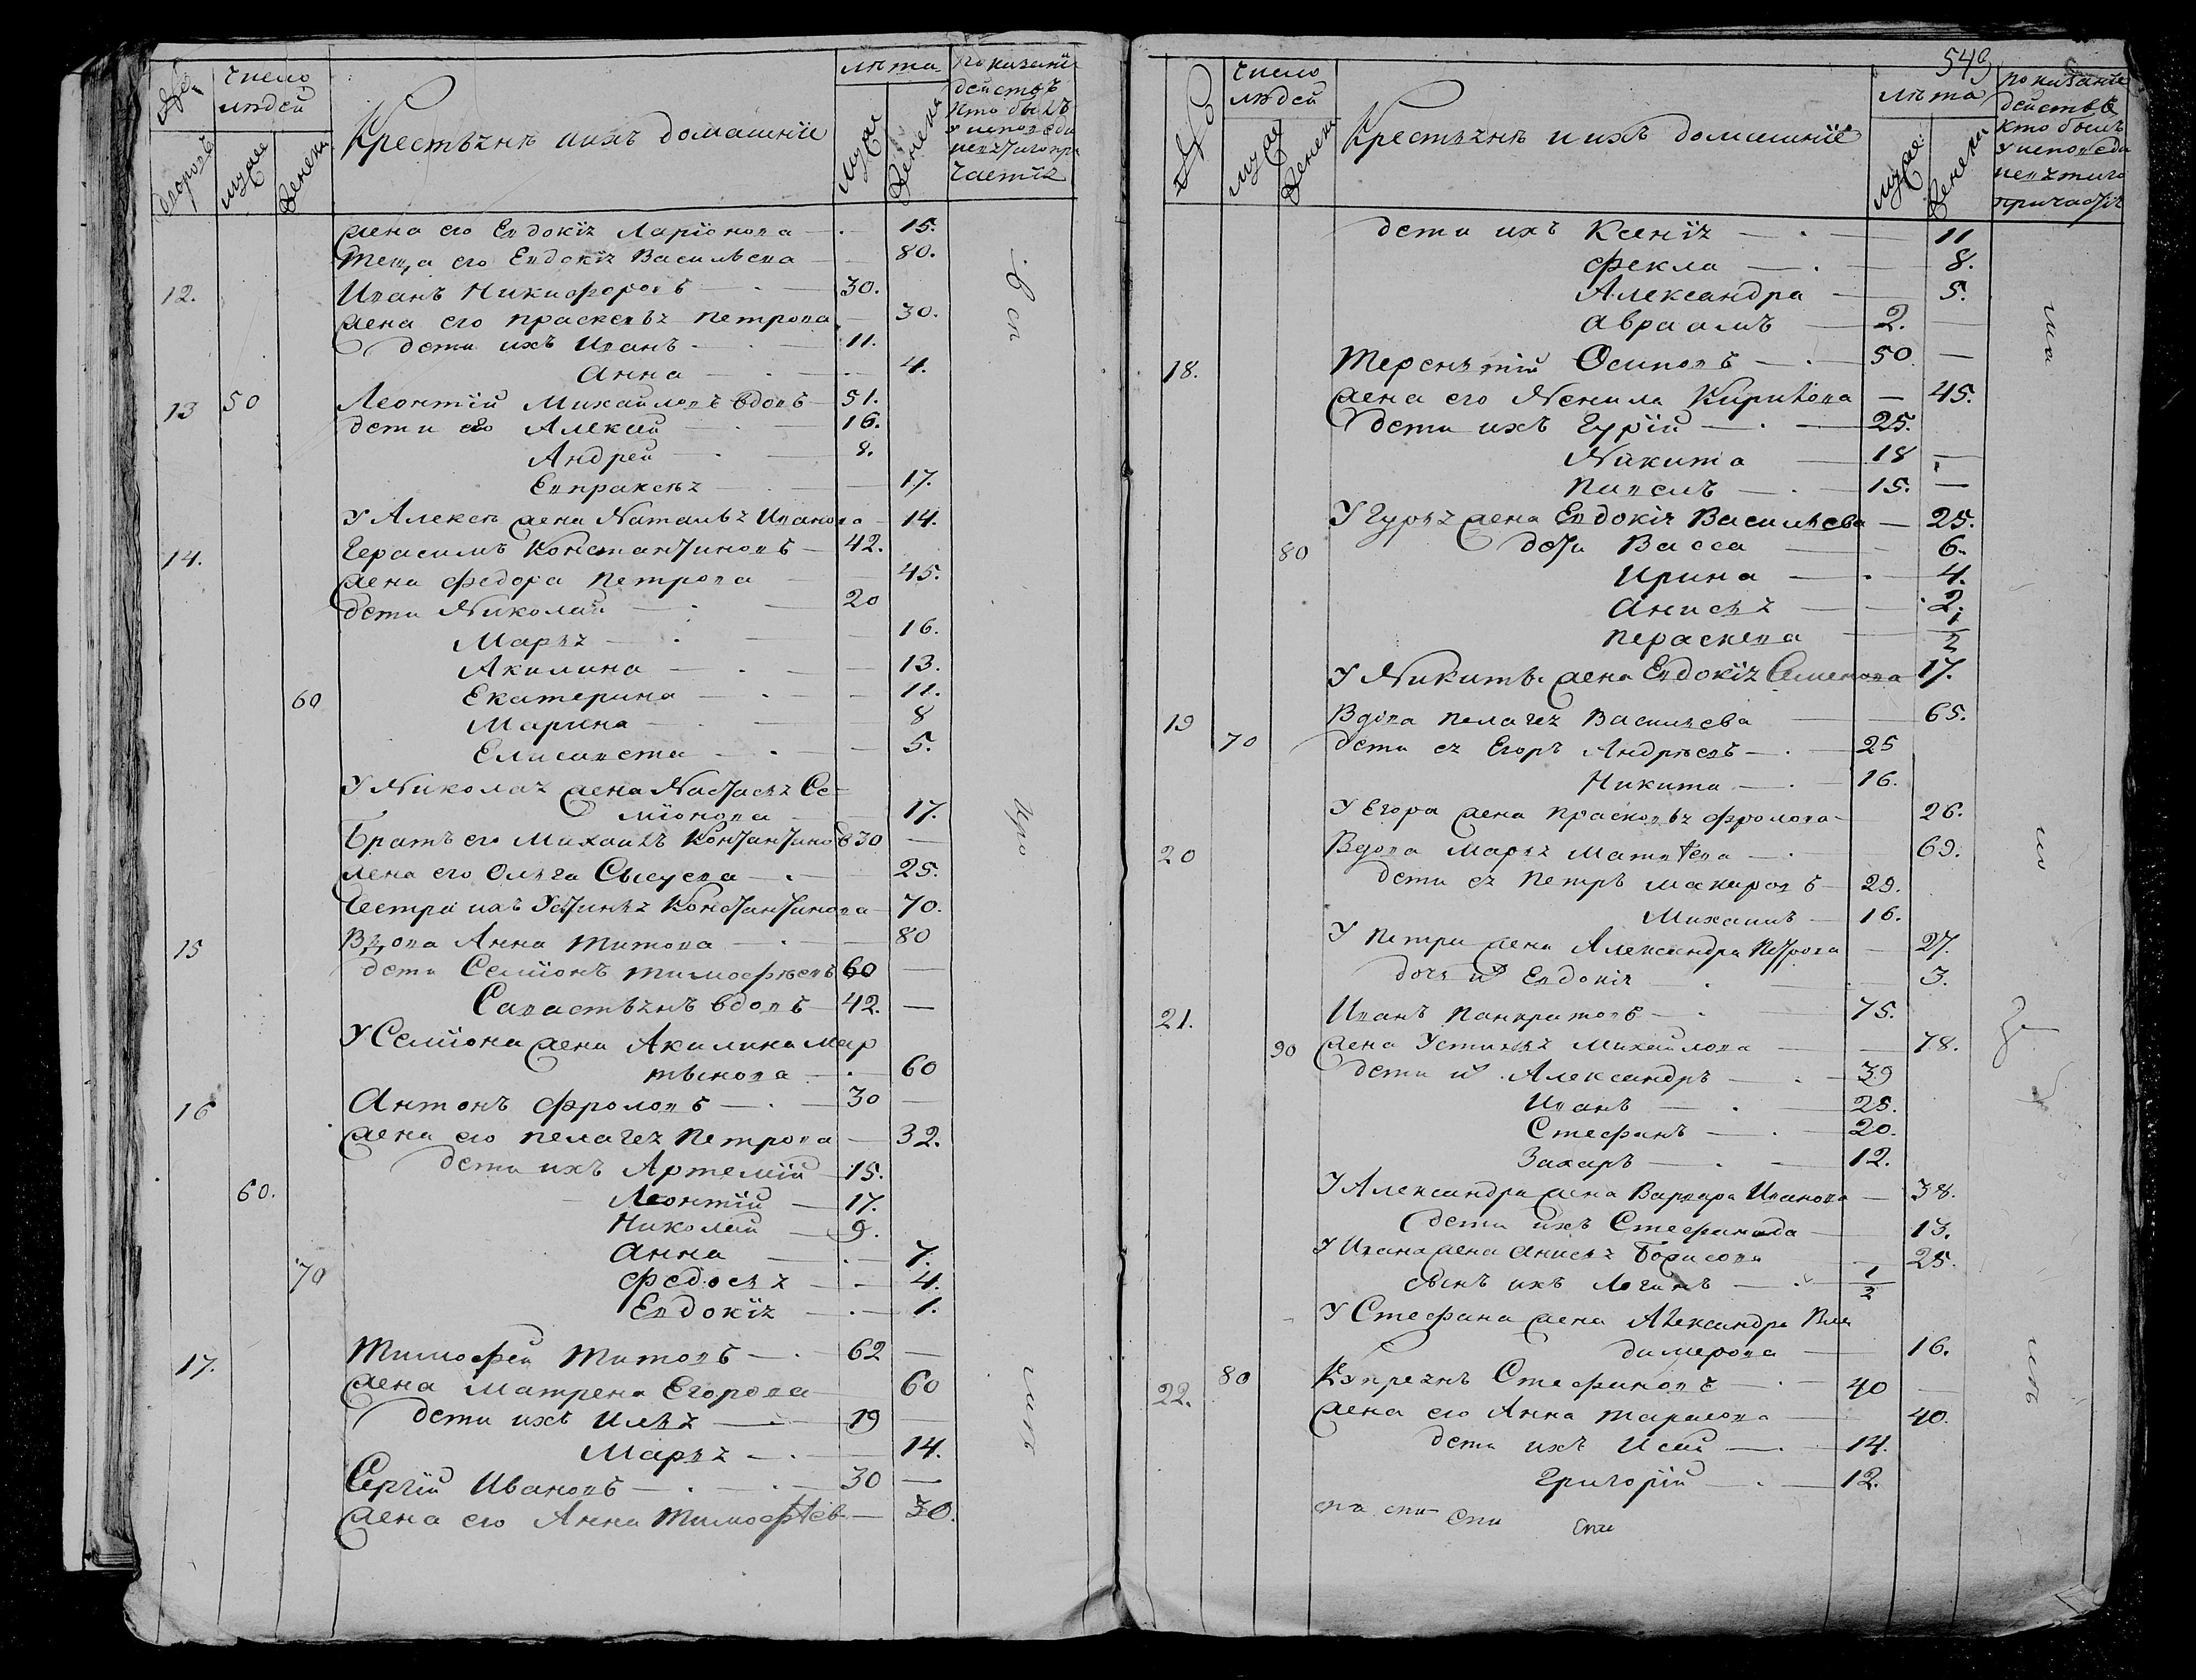 число
людей
дворовъ
мужес
женска
Крестьянѣ и ихъ домашніе
лѣта
мужес
женска
показаніе
действъ
кто былъ
у исповеди
и св: таго при
частія
жена его Евдокія Ларіонова — 15.
теща его Евдокія Васильева — 80.
12. Иванъ Никифоровъ — 30.
жена его Праскевья Петрова — 30.
дети ихъ Иванъ — 11.
Анна — 4.
13 50 Леонтій Михайловъ вдовъ — 51.
дети его Алексий — 16.
Андрей — 8.
Евпраксея — 17.
У Алексея жена Наталья Иванова — 14.
14. Герасимъ Константиновъ — 42.
жена Федора Петрова — 45.
дети Николай — 20
Марья — 16.
Акилина — 13.
60 Екатерина — 11.
Марина — 8
Елисавета — 5.
У Николая жена Настасья Се=
міонова — 17.
Братъ его Михаилъ Константиновъ 30 —
жена его Ольга Сысуева — 25.
Сестра ихъ Устинья Константинова — 70.
15 Вдова Анна Титова — 80
дети Семіонъ Тимофѣевъ 60 —
Савастьянъ вдовъ — 42. —
У Семіона жена Акилина Мар
тынова — 60
16 Антонъ Фроловъ — 30 —
жена его Пелагея Петрова — 32.
дети ихъ Артемій — 15.
60. Леонтій — 17.
Николай — 9.
Анна — 7.
70 Федосья — 4.
Евдокія — 1.
17. Тимофей Титовъ — 62 —
жена Матрена Егорова — 60
дети ихъ Илья — 19
Марья — 14.
Сергій Ивановъ — 30 —
жена его Анна Тимофѣев — 30.
549
число
людей
мужес
женска
Крестьянѣ и ихъ домашніе
лѣта
мужес:
женска
показаніе
действъ
кто былъ
у исповеди
и святаго
причастія
дети ихъ Ксенія — 11
Фекла — 8.
Александра — 5.
Авраамъ — 2. —
18. Терентій Осиповъ — 50 —
жена его Ненила Кирилова — 45.
дети ихъ Гурій — 25.
Никита — 18 —
Павелъ — 15. —
У Гурья жена Евдокія Васильева — 25.
80 дети Васса — 6.
Ирина — 4.
Анисья — 2.
Пераскева — 1/2
У Никиты жена Евдокія Семенова 17.
19 Вдова Пелагея Васильева — 65.
70 дети ея Егоръ Андрѣевъ — 25
Никита — 16.
У Егора жена Прасковья Фролова — 26.
20 Вдова Марья Матвѣева — 69.
дети ея Петръ Макаровъ — 29.
Михаилъ — 16.
У Петра жена Александра Петрова — 27.
дочь их Евдокія — 3.
21. Иванъ Панкратовъ — 75.
90 жена Устинья Михайлова — 78.
дети их Александръ — 39
Иванъ — 25.
Стефанъ — 20.
Захаръ — 12.
У Александра жена Варвара Иванова — 38.
дети ихъ Стефанида — 13.
У Ивана жена Анисья Борисова — 25.
сынъ ихъ Логинъ — 1/2
У Стефана жена Александра Вла
димерова — 16.
22. 80 Купреянъ Стефановъ — 40 —
жена его Анна Тарасова — 40.
дети ихъ Исай — 14.
Григорій — 12.